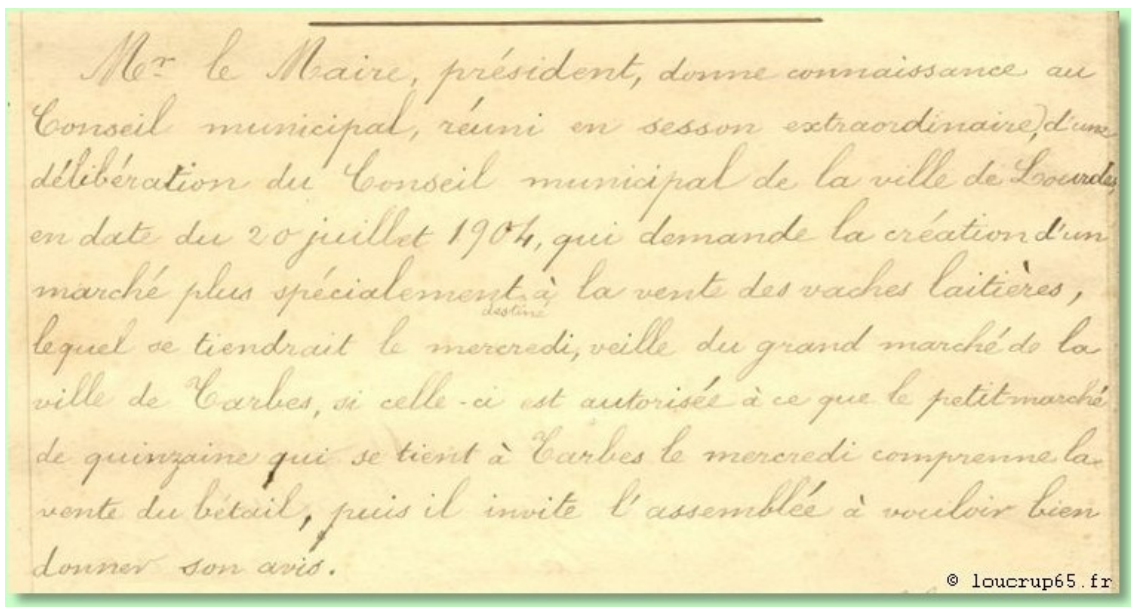 Mr le Maire, président, donne connaissance au
Conseil municipal, réuni en sesson extraordinaire, d'une
délibération du Conseil municipal de la ville de Lourdes,
en date du 20 juillet 1904, qui demande la création d'un
marché plus spécialement à la vente des vaches laitières,
destiné
lequel se tiendrait le mercredi, veille du grand marché de la
ville de Tarbes, si celle-ci est autorisée à ce que le petit marché
de quinzaine qui se tient à Tarbes le mercredi comprenne la
vente du bétail, puis il invite l'assemblée à vouloir bien
donner son avis.
© loucrup65.fr